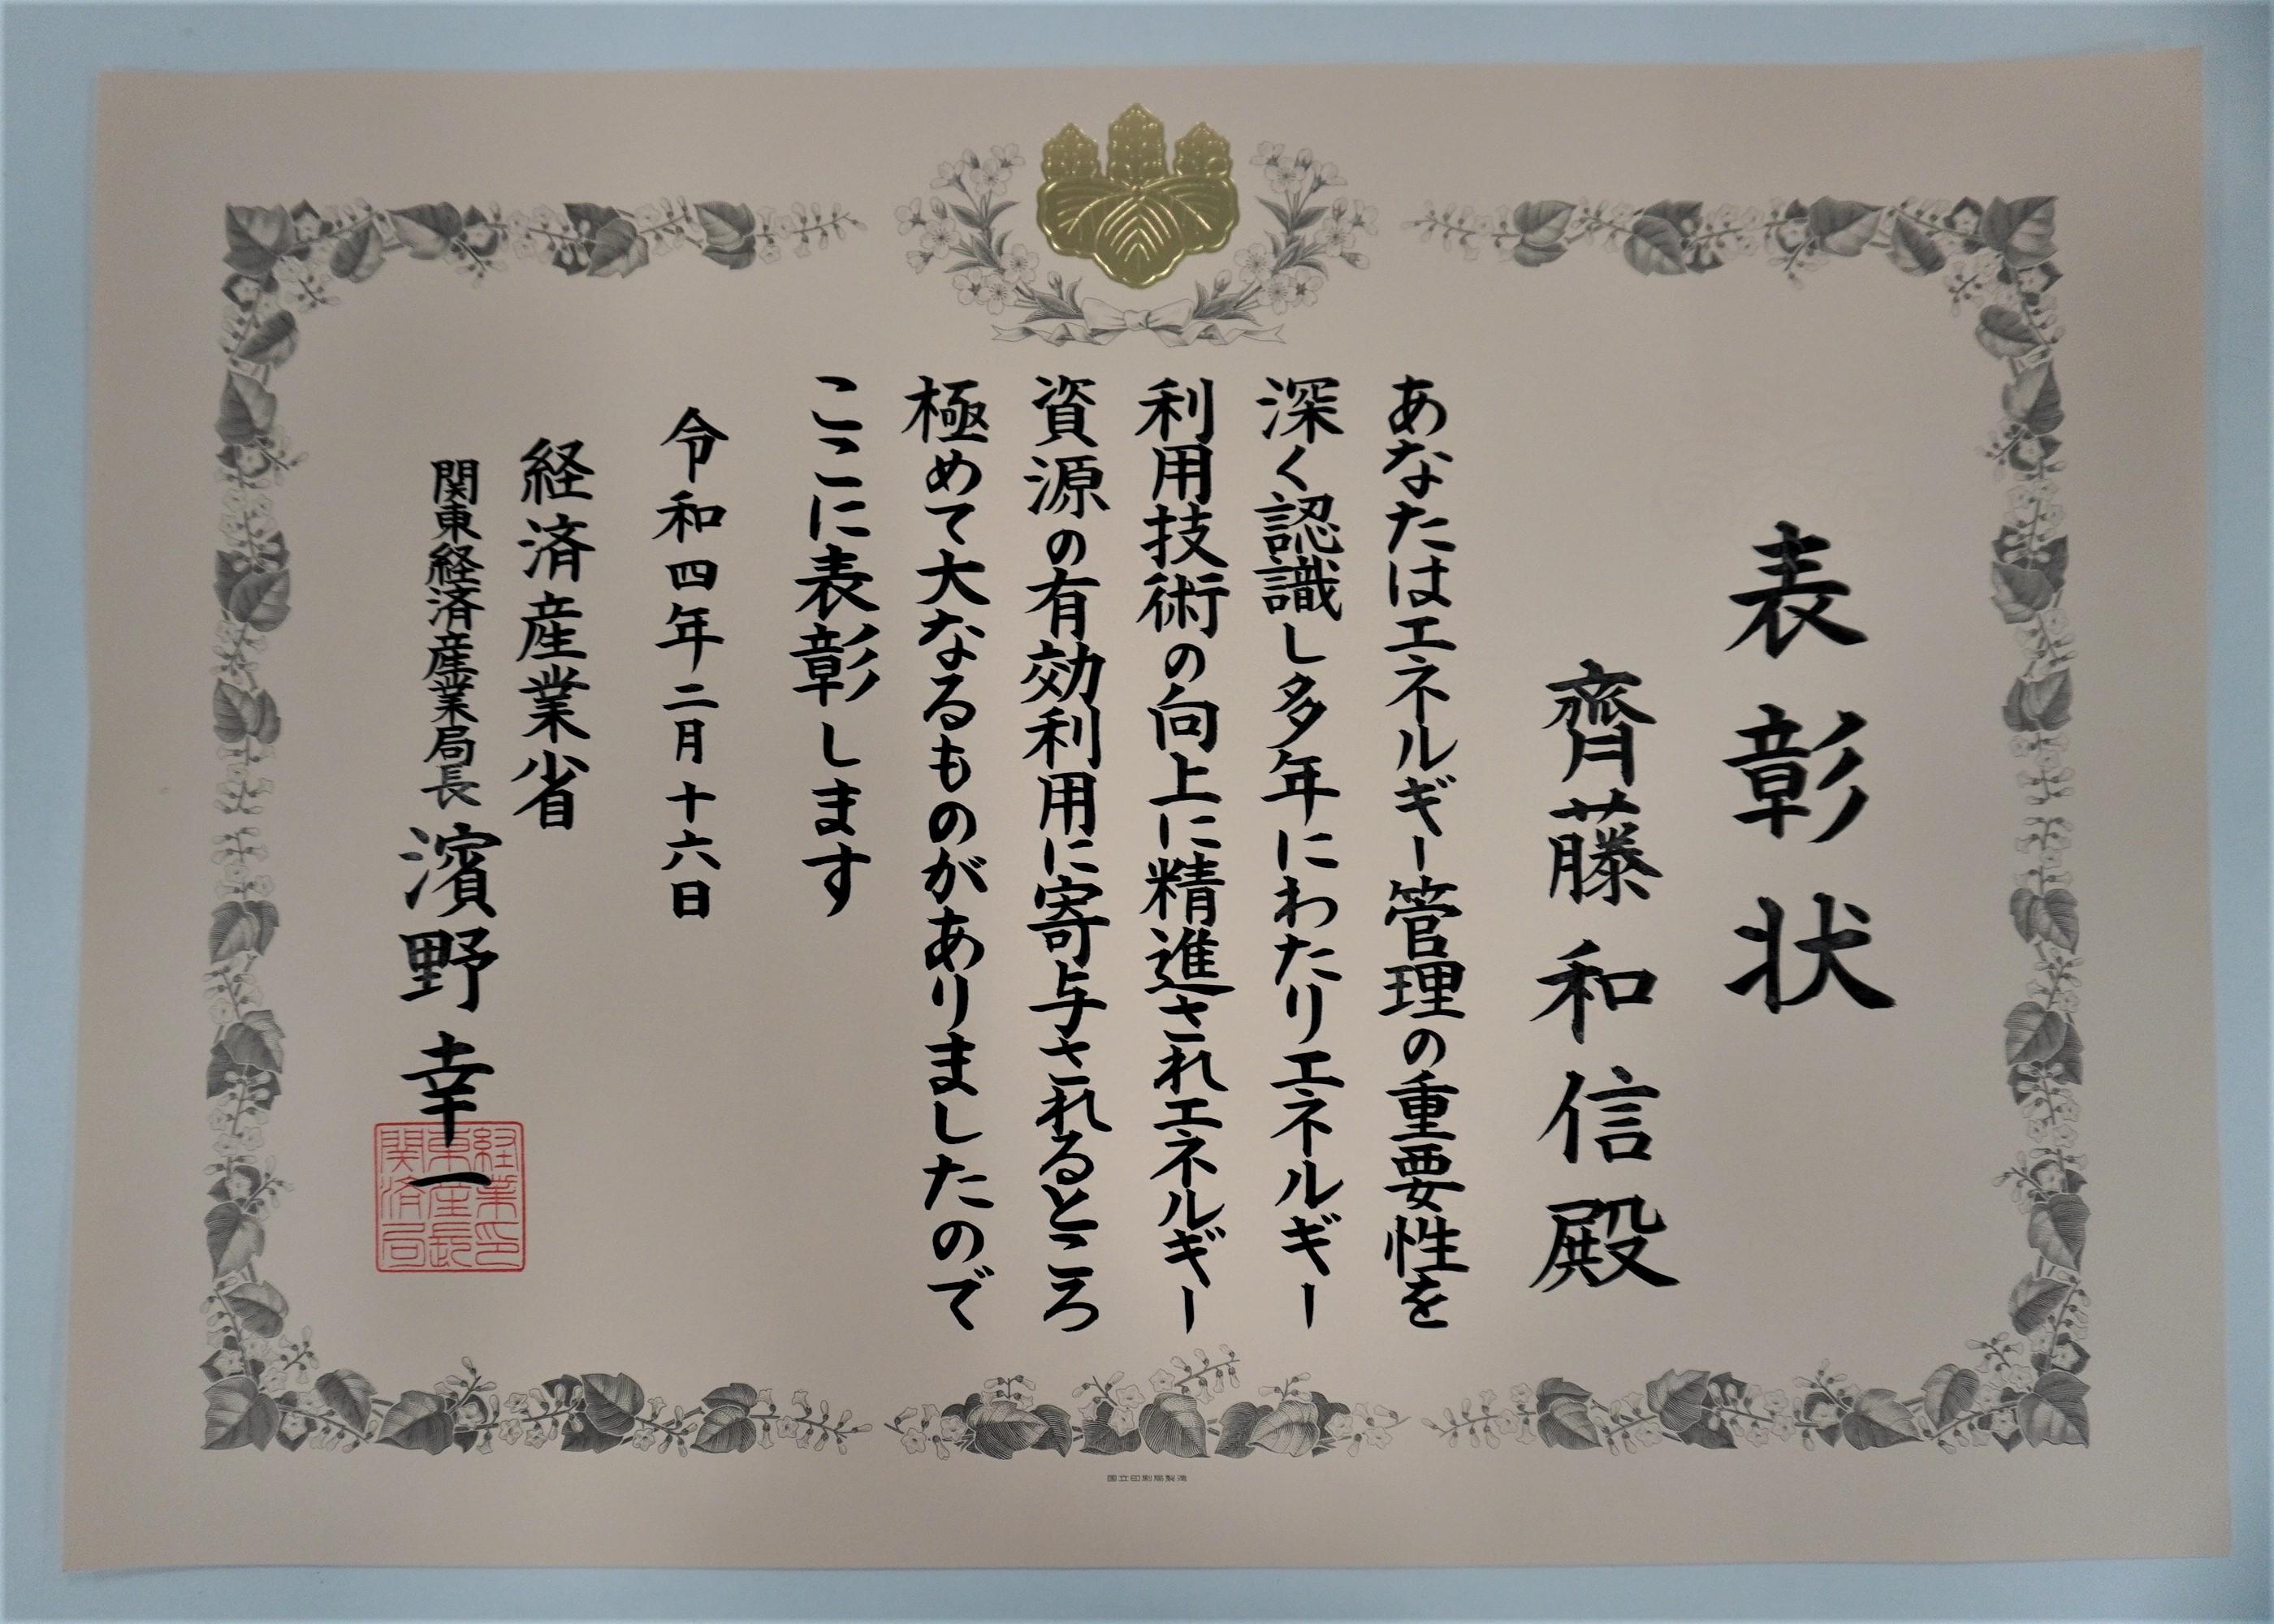 表彰状
齊藤和信殿
あなたはエネルギー管理の重要性を
深く認識し多年にわたりエネルギー
利用技術の向上に精進されエネルギー
資源の有効利用に寄与されるところ
極めて大なるものがありましたので
ここに表彰します
令和四年二月十六日
経済産業省
関東経済産業局長 濱野幸一
経業印
東産長
関済局
国立印刷局製造